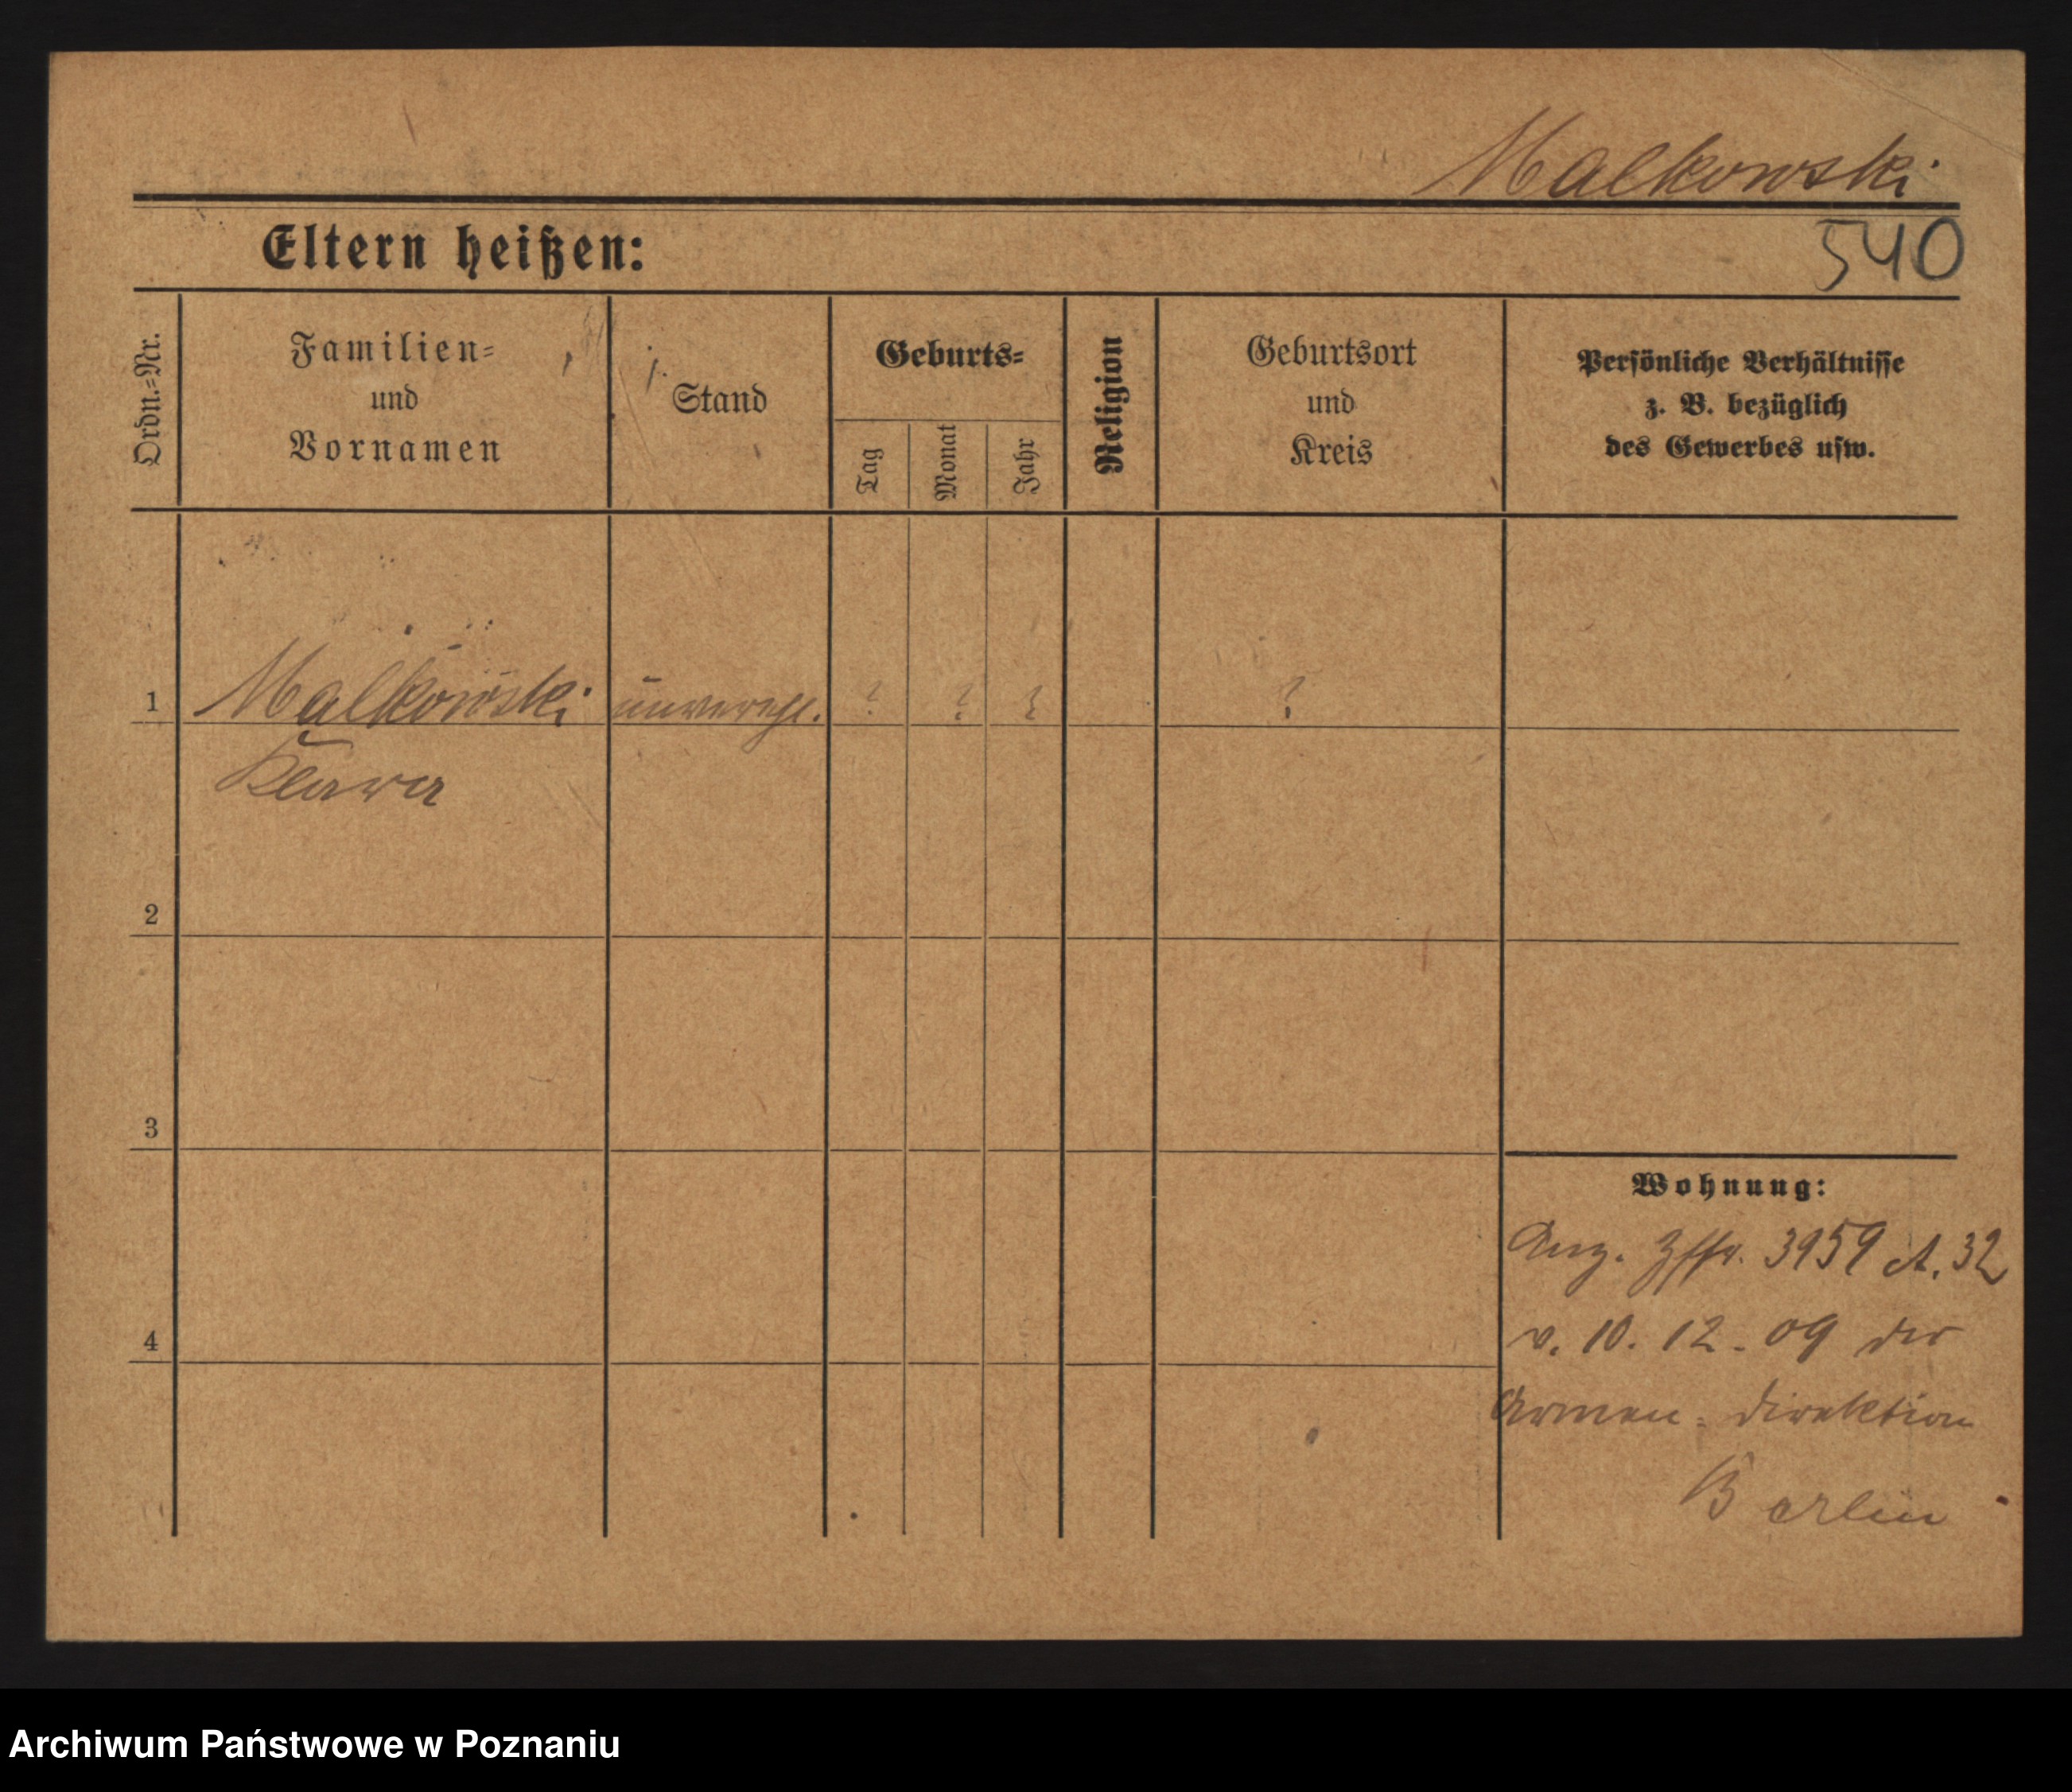 Malkowski
540
Eltern heißen:
Ordn.-Nr.
Familien-
und
Vornamen
Stand
Geburts-
Tag
Monat
Jahr
Religion
Geburtsort
und
Kreis
Persönliche Verhältnisse
z. B. bezüglich
des Gewerbes usw.
1 Malkowski unverehl. ? ? ? ?
Klara
2
3
4
Wohnung:
Anz. 3959 A. 32
v. 10. 12. 09 der
Armen-Direktion
Berlin
Archiwum Państwowe w Poznaniu